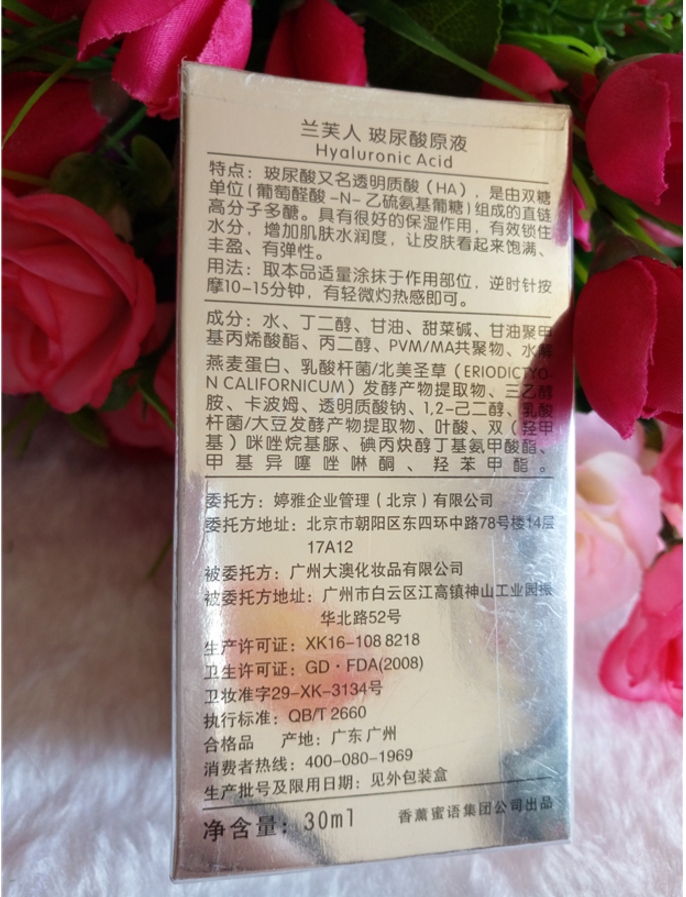 兰芙人 玻尿酸原液
Hyaluronic Acid
特点：玻尿酸又名透明质酸（HA），是由双糖
单位(葡萄醛酸-N-乙硫氨基葡糖)组成的直链
高分子多醣。具有很好的保湿作用，有效锁住
水分，增加肌肤水润度，让皮肤看起来饱满、
丰盈、有弹性。
用法：取本品适量涂抹于作用部位，逆时针按
摩10-15分钟，有轻微灼热感即可。
成分：水、丁二醇、甘油、甜菜碱、甘油聚甲
基丙烯酸酯、丙二醇、PVM/MA共聚物、水解
燕麦蛋白、乳酸杆菌/北美圣草（ERIODICTYO
N CALIFORNICUM）发酵产物提取物、三乙醇
胺、卡波姆、透明质酸钠、1,2-己二醇、乳酸
杆菌/大豆发酵产物提取物、叶酸、双（羟甲
基）咪唑烷基脲、碘丙炔醇丁基氨甲酸酯、
甲基异噻唑啉酮、羟苯甲酯。
委托方：婷雅企业管理（北京）有限公司
委托方地址：北京市朝阳区东四环中路78号楼14层
17A12
被委托方：广州大澳化妆品有限公司
被委托方地址：广州市白云区江高镇神山工业园振
华北路52号
生产许可证：XK16-108 8218
卫生许可证：GD·FDA(2008)
卫妆准字29-XK-3134号
执行标准：QB/T 2660
合格品 产地：广东广州
消费者热线：400-080-1969
生产批号及限用日期：见外包装盒
净含量：30ml 香薰蜜语集团公司出品